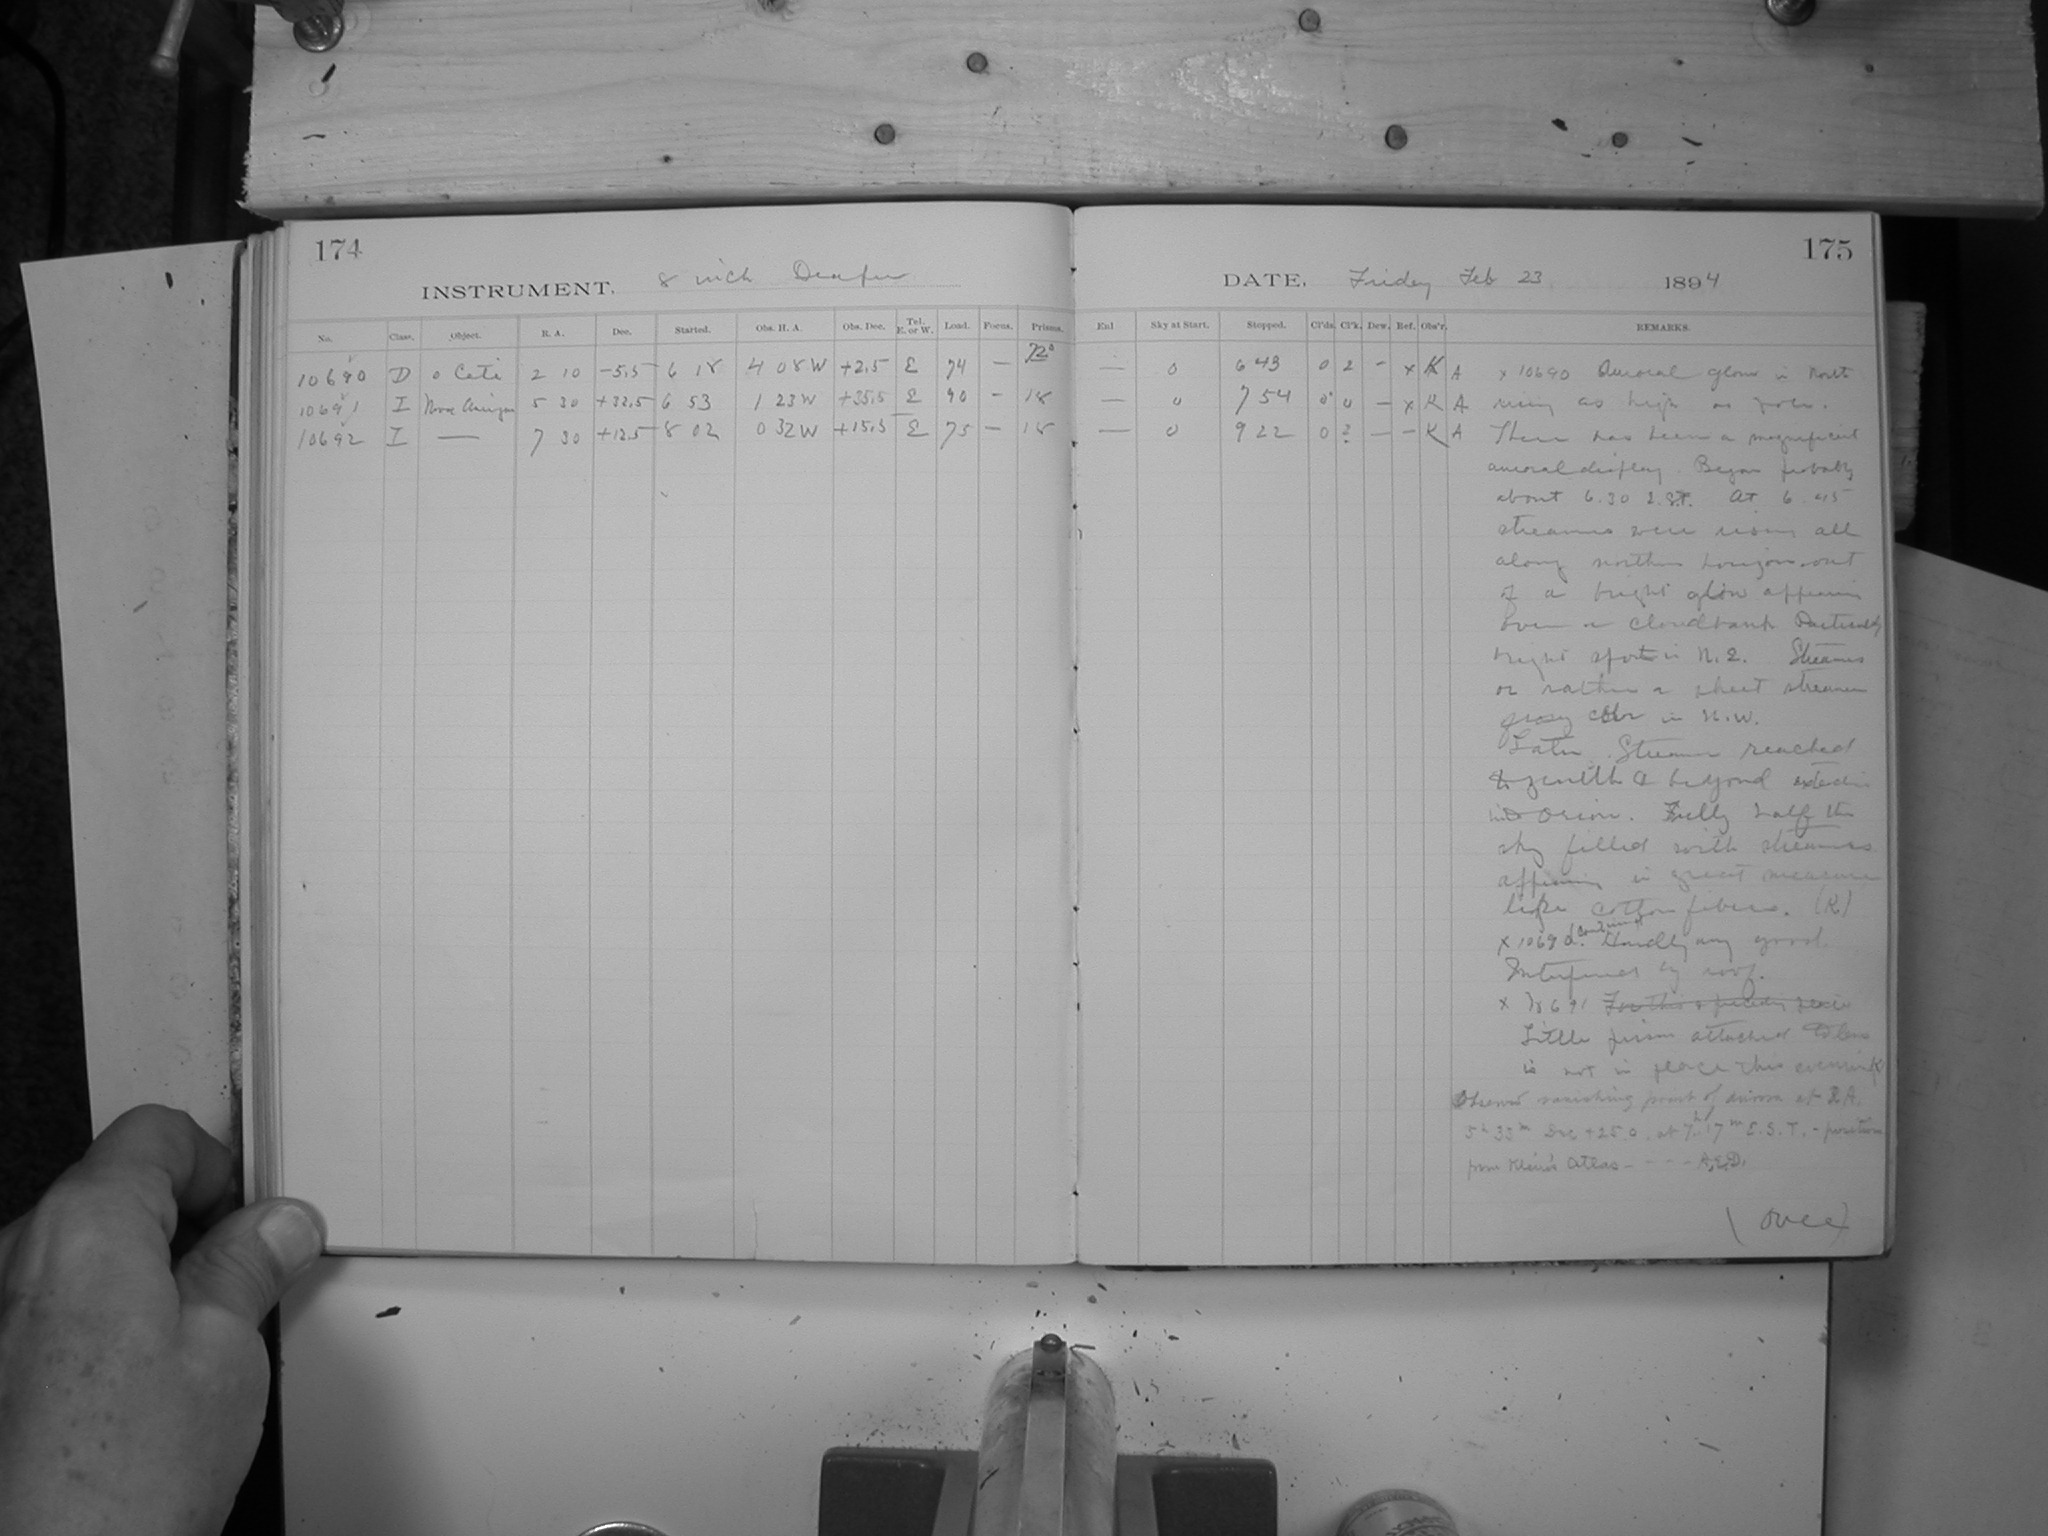 174
175
INSTRUMENT. 8 inch Draper
DATE, Friday Feb 23 1894
No. Class. Object. R. A. Dec. Started. Obs. H. A. Obs. Dec. Tel. E. or W. Load. Focus. Prisms. Enl Sky at Start. Stopped. Cl'ds. Cl'k. Dew. Ref. Obs'r. REMARKS.
72°
10690 D o Ceti 2 10 -5.5 6 18 4 08 W +2.5 E 74 — — 0 6 43 0 2 - x K A
10691 I Novae Aurigae 5 30 +32.5 6 53 1 23 W +35.5 E 90 - 18 — 0 7 54 0 0 — x K A
10692 I — 7 30 +12.5 8 02 0 32 W +15.5 E 75 — 18 — 0 9 22 0 2 — - K A
x 10690 Auroral glow in North
rising as high as pole.
There has been a magnificent
auroral display. Began probably
about 6.30 E.S.T. At 6.45
streamers were rising all
along northern horizon out
of a bright glow appearing
over a cloudbank Particularly
bright spot in N.E. Streamers
or rather a sheet streamer
color in N.W.
Later Streamer reached
to zenith & beyond extending
into Orion. Fully half the
sky filled with streamers
appearing in great measure
like cotton fibers. (K)
x 10690 continued Hardly any good.
Interfered by roof.
x 10691 For this & preceding
Little prism attached to lens
is not in place this evening K
Observed vanishing point of aurora at R.A.
5h 33m Dec +25.0. at 7h 17m E.S.T. - position
from Klein's Atlas - - - - A.E.D.
(over)